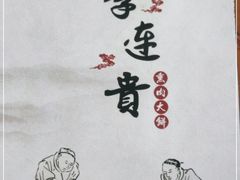 李連貴
熏肉大餅